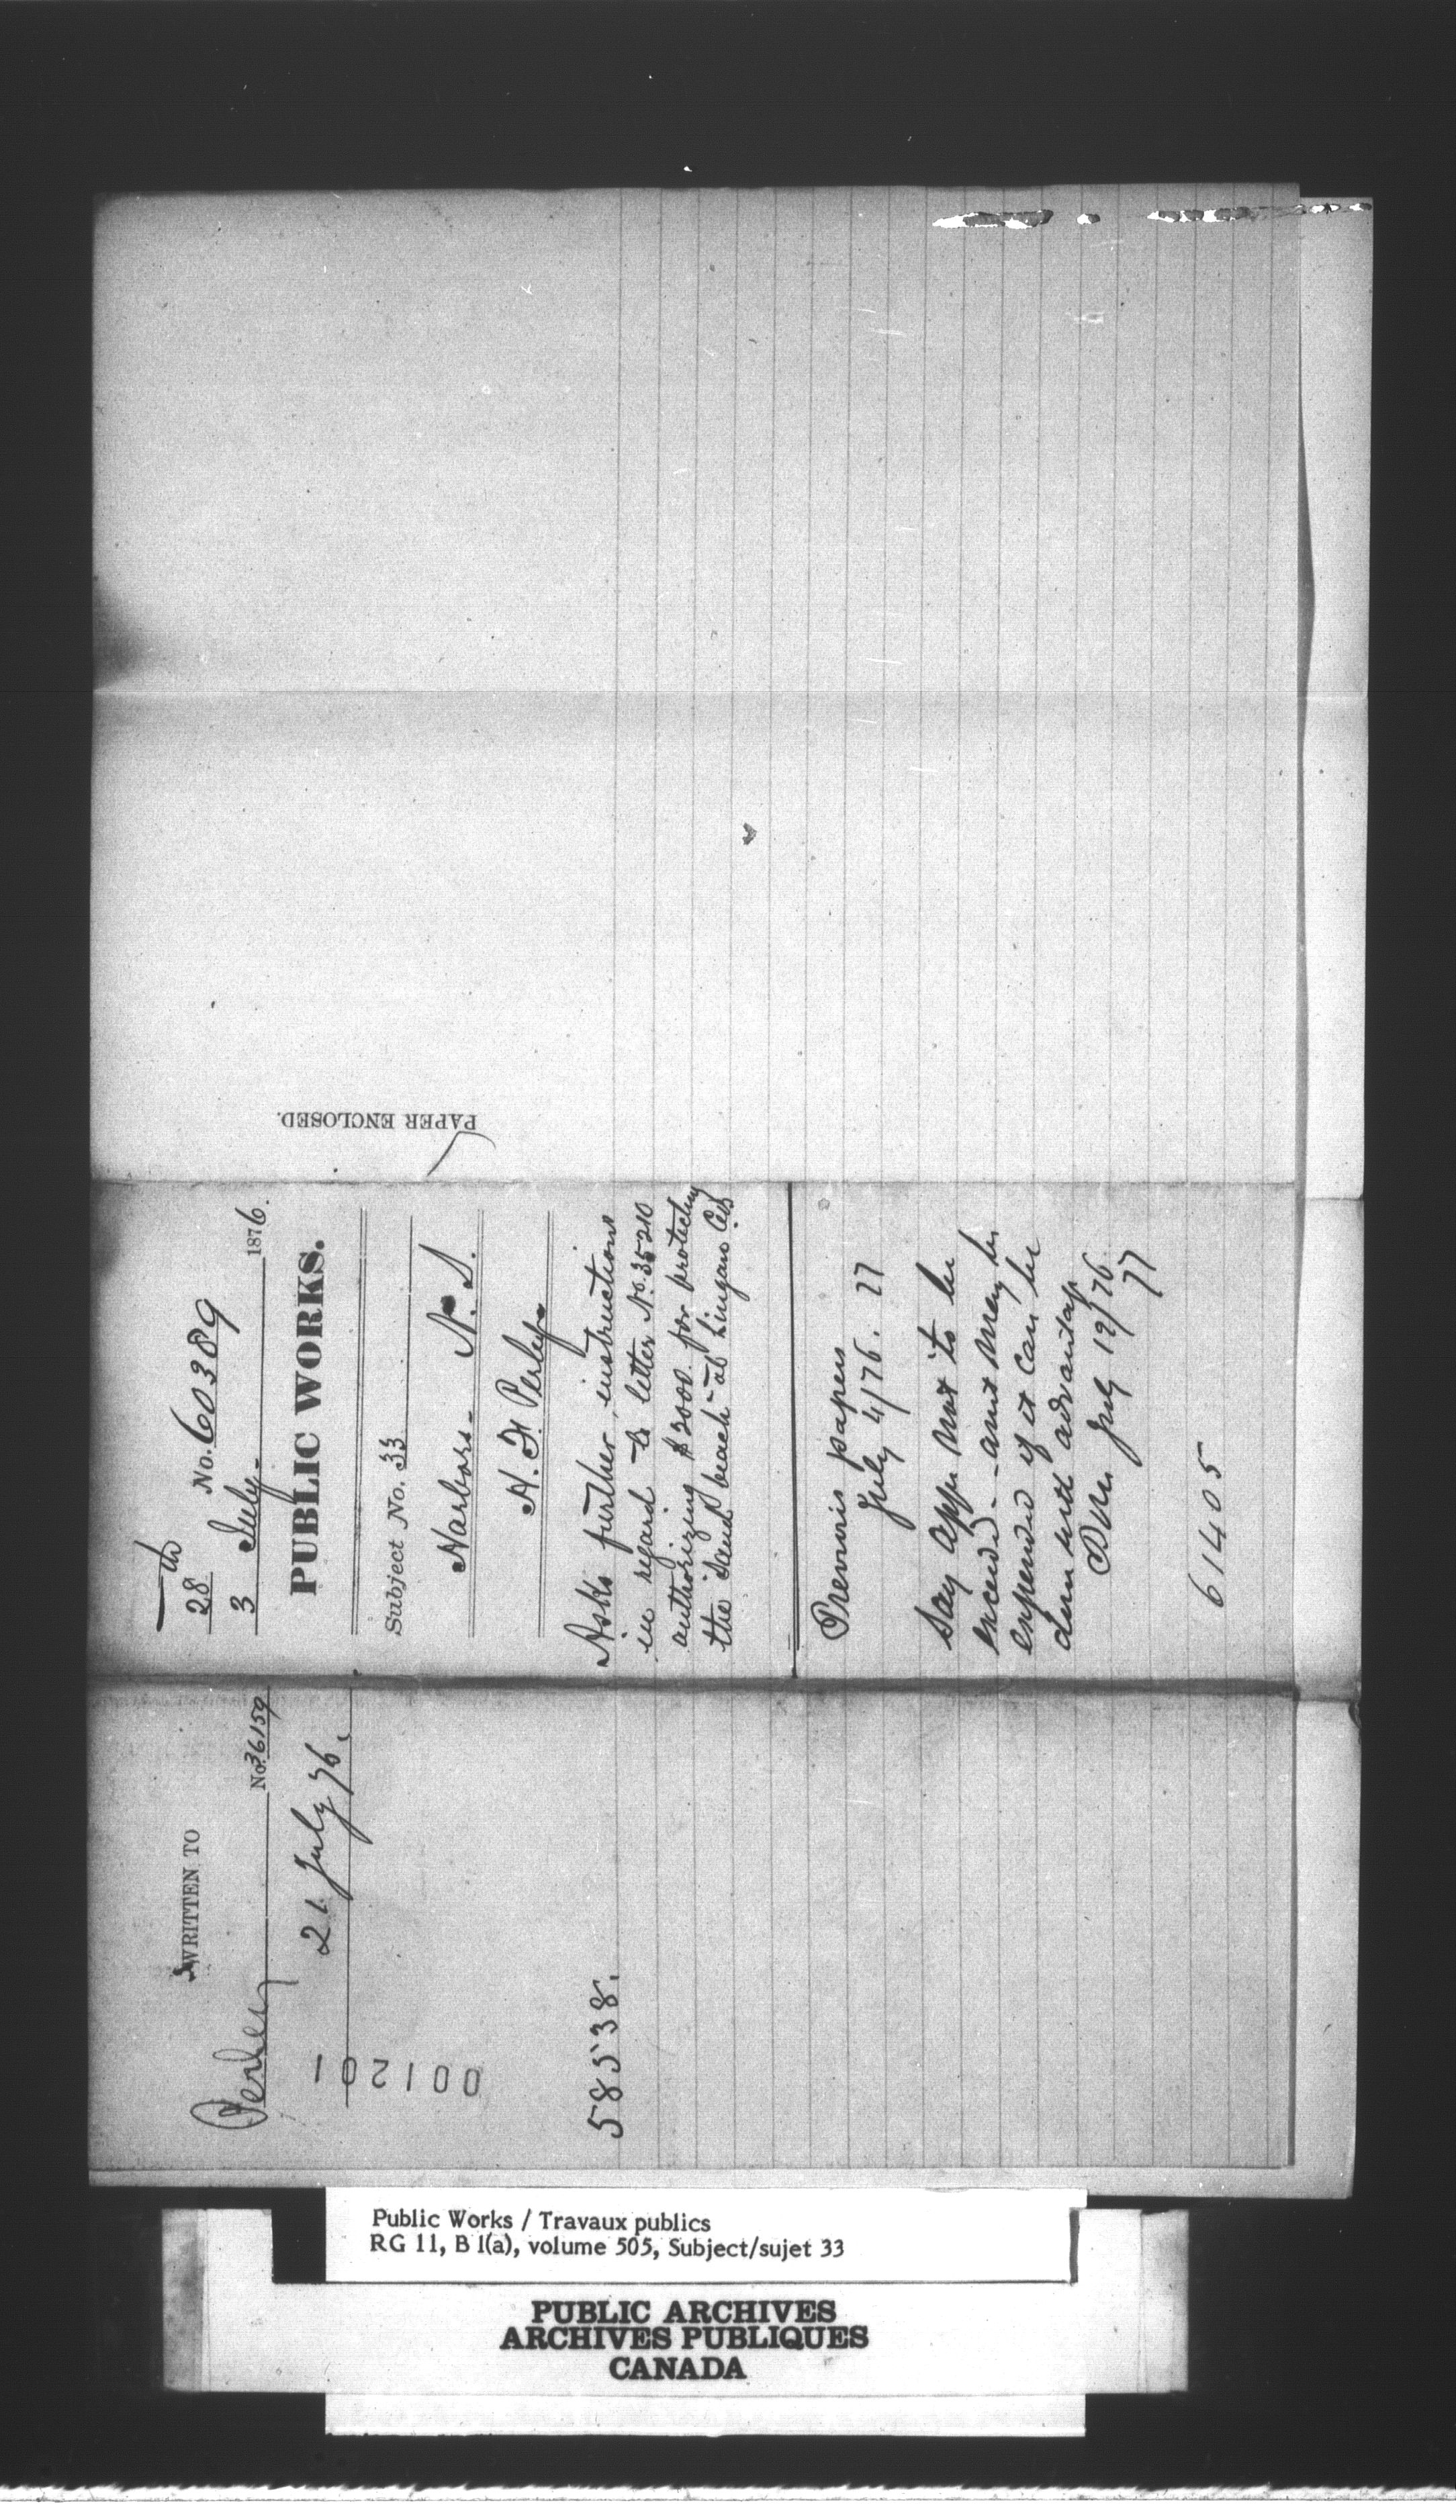 th
28 No. 60389
3 July - 1876.
PUBLIC WORKS.
Subject No. 33
Harbors - N. S.
H. F. Perley
Asks further instructions
in regard to letter No. 35210
authorizing $2000. for protecting
the Sand beach - at Lingan C.B
Previous papers
July 4/76. 27
Say app. not to be
exceeded - amt may be
expended if it can be
done with advantage
July 12/76
77
61405
PAPER ENCLOSED.
WRITTEN TO
Perley No. 36159
21 July 76.
001201
58538.
Public Works / Travaux publics
RG 11, B 1(a), volume 505, Subject/sujet 33
PUBLIC ARCHIVES
ARCHIVES PUBLIQUES
CANADA